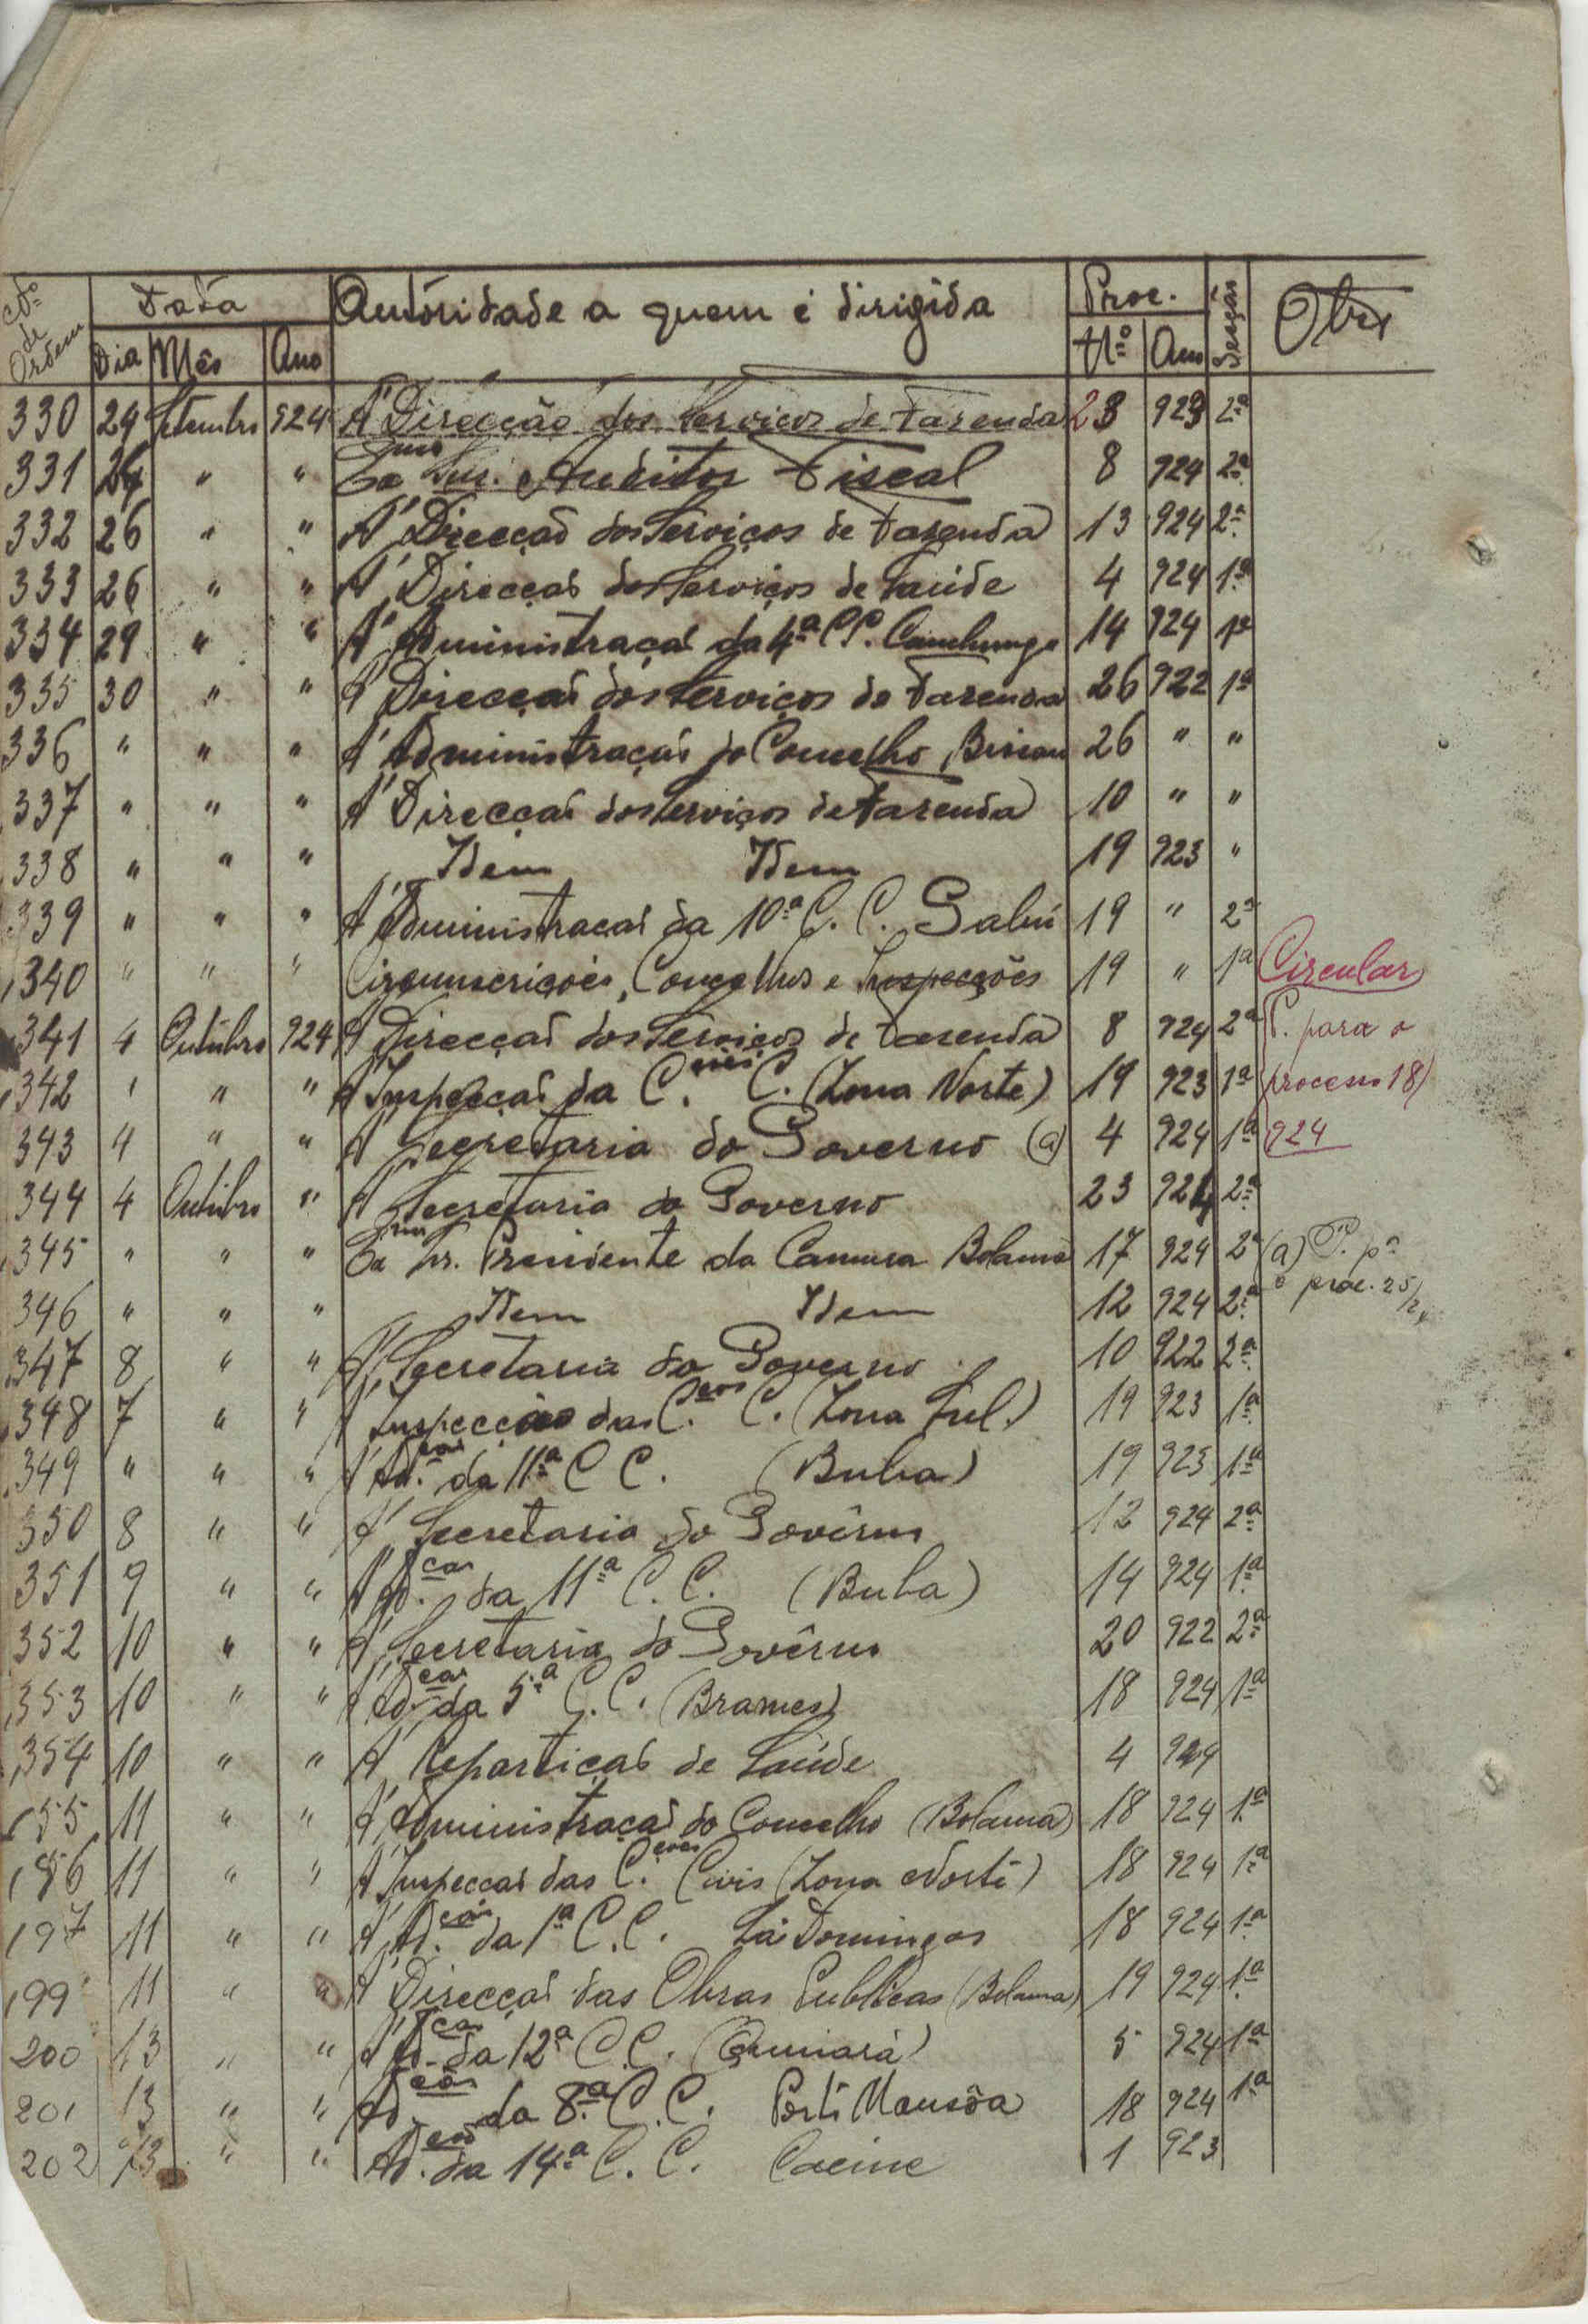 Nº de Ordem Data Autoridade a quem é dirigida Proc. Secção Obs
Dia Mês Ano Nº Ano
330 24 Setembro 924 Á Direcção dos Serviços de Fazenda 23 923 2ª
331 24 " " Exmo Snr. Auditor Fiscal 8 924 2ª
332 26 " " Á Direcção dos Serviços de Fazenda 13 924 2ª
333 26 " " Á Direcção dos Serviços de Saúde 4 924 1ª
334 29 " " Á Administração da 4ª C. C. Canchungo 14 924 1ª
335 30 " " Á Direcção dos Serviços de Fazenda 26 922 1ª
336 " " " Á Administração do Concelho, Bissau 26 " "
337 " " " Á Direcção dos Serviços de Fazenda 10 " "
338 " " " Idem Idem 19 923 "
339 " " " Á Administração da 10ª C. C. Gabú 19 " 2ª
340 " " " Circunscrições, Concelhos e Inspecções 19 " 1ª Circular
341 4 Outubro 924 Á Direcção dos Serviços de Fazenda 8 924 2ª P. para o
342 " " " Á Inspecção da C.ções C. (Zona Norte) 19 923 1ª processo 18/
343 4 " " Á Secretaria do Governo (a) 4 924 1ª 924
344 4 Outubro " Á Secretaria do Governo 23 924 2ª
345 " " " Exmo Sr. Presidente da Camara Bolama 17 924 2ª (a) P. pª
346 " " " Idem Idem 12 924 2ª o proc. 25/24
347 8 " " Á Secretaria do Governo 10 922 2ª
348 7 " " Á Inspecção das C.ções C. (Zona Sul.) 19 923 1ª
349 " " " Á Ad.ção da 11ª C C. (Buba) 19 923 1ª
350 8 " " Á Secretaria do Govêrno 12 924 2ª
351 9 " " Á Ad.ção da 11ª C. C. (Buba) 14 924 1ª
352 10 " " Á Secretaria do Govêrno 20 922 2ª
353 10 " " Á Ad.ção da 5ª C. C. (Brames) 18 924 1ª
354 10 " " Á Repartição de Saúde 4 924
155 11 " " Á Administração do Concelho (Bolama) 18 924 1ª
186 11 " " Á Inspecção das C.ções Civis (Zona Norte) 18 924 1ª
197 11 " " Á Ad.ção da 1ª C. C. São Domingos 18 924 1ª
199 11 " " Á Direcção das Obras Publicas (Bolama) 19 924 1ª
200 13 " " Á Ad.ção da 12ª C. C. (Quinará) 5 924 1ª
201 13 " " Ad.ção da 8ª C. C. Porto Mansôa 18 924 1ª
202 13 " " Ad.ção da 14ª C. C. Cacine 1 923